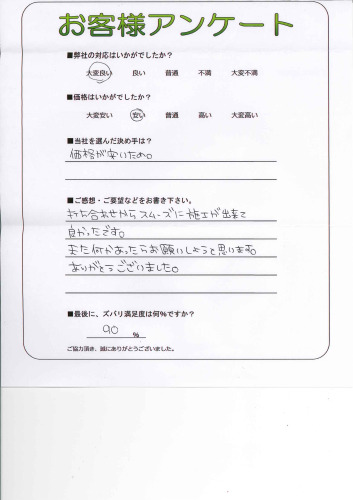 お客様アンケート
■弊社の対応はいかがでしたか?
大変良い 良い 普通 不満 大変不満
■価格はいかがでしたか?
大変安い 安い 普通 高い 大変高い
■当社を選んだ決め手は?
価格が安いため。
■ご感想・ご要望などをお書き下さい。
打ち合わせからスムーズに施工が出来て
良かったです。
また何かあったらお願いしようと思います。
ありがとうございました。
■最後に、ズバリ満足度は何%ですか?
90 %
ご協力頂き、誠にありがとうございました。